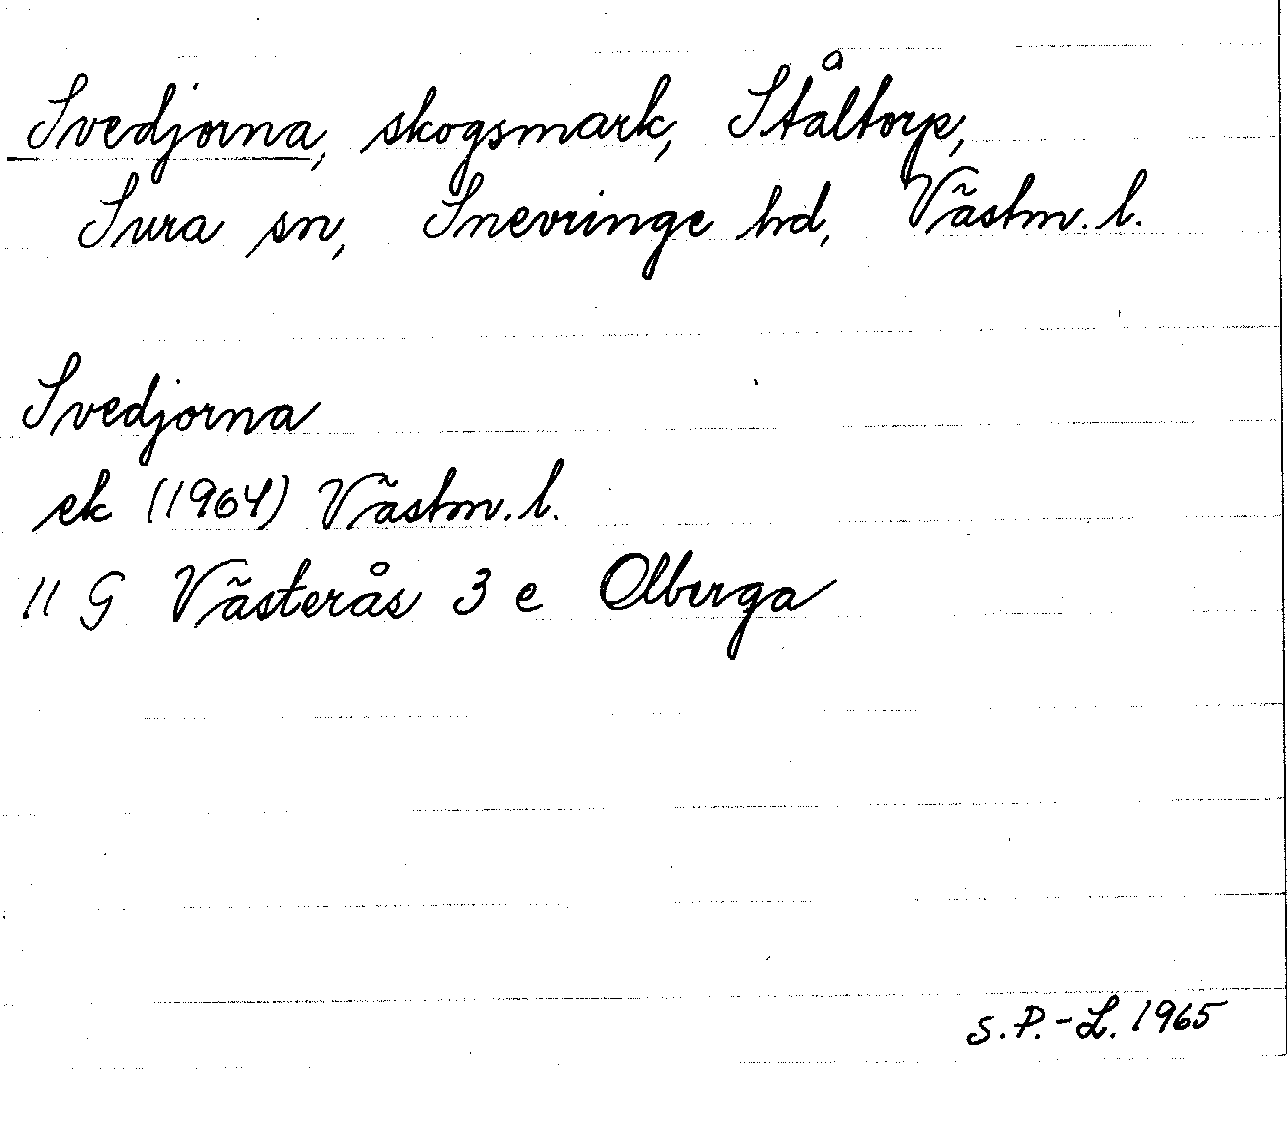 Svedjorna, skogsmark, Ståltorp,
Sura sn, Snevringe hd, Västm. l.
Svedjorna
ek (1964) Västm. l.
11 G Västerås 3 e Olberga
S. P.-L. 1965